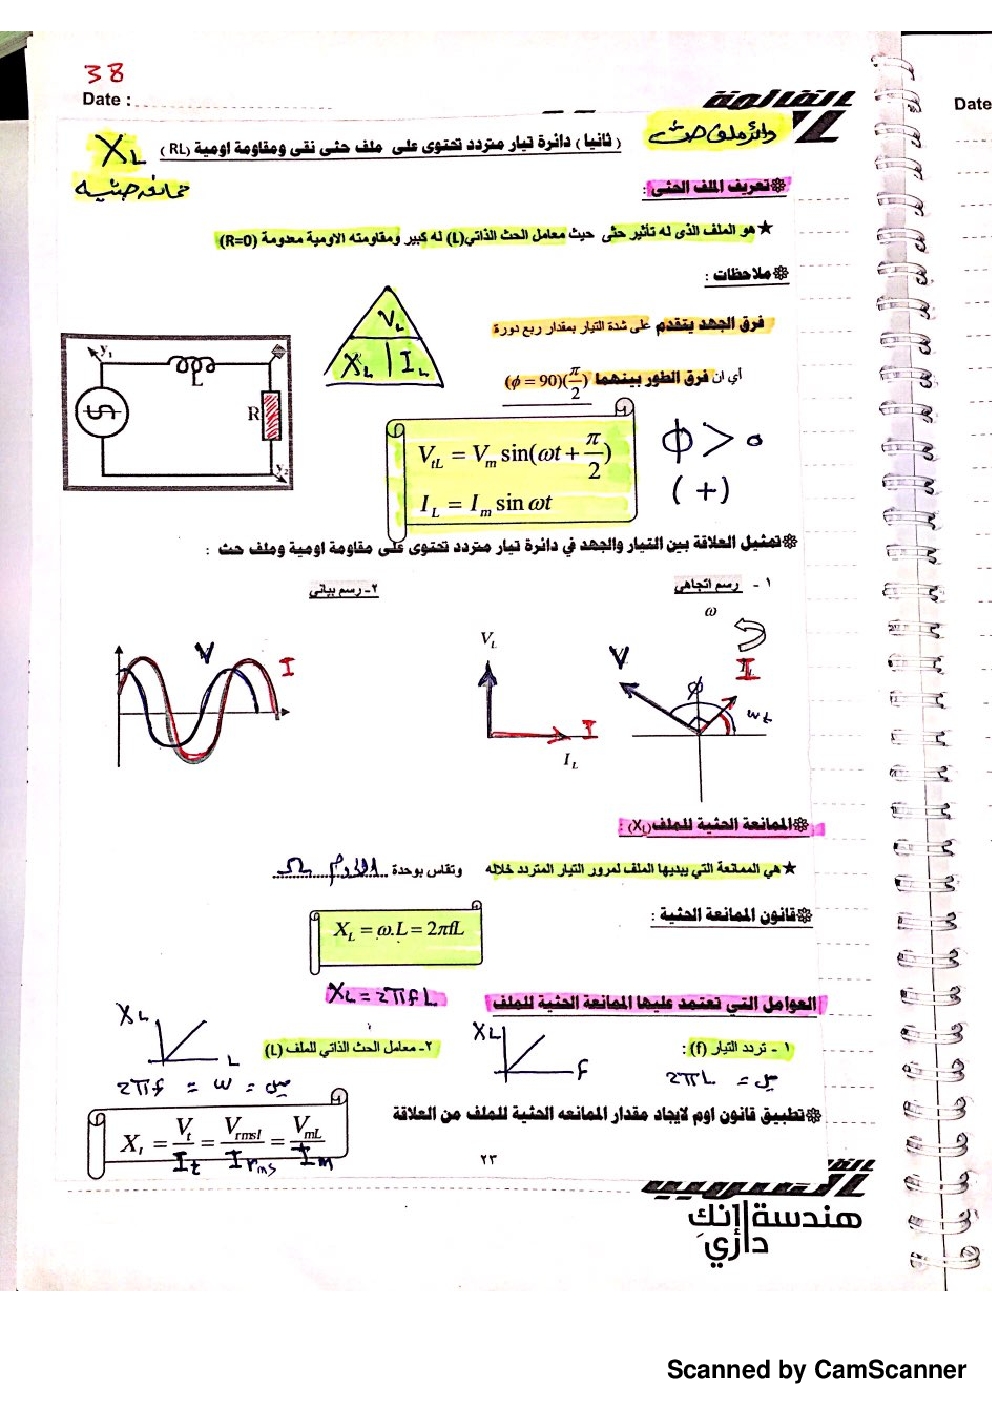 38
Date :
Date
القائمة
دائرة ملف حثي
( ثانيا ) دائرة تيار متردد تحتوى على ملف حثى نقى ومقاومة اومية (RL)
XL
ممانعه حثيه
تعريف الملف الحثى :
★ هو الملف الذى له تأثير حثى حيث معامل الحث الذاتي (L) له كبير ومقاومته الاومية معدومة (R=0)
ملاحظات :
فرق الجهد يتقدم على شدة التيار بمقدار ربع دورة
أي ان فرق الطور بينهما (π/2)(ϕ = 90)
VL
XL | IL
y1
L
R
y2
VtL = Vm sin(ωt + π/2)
IL = Im sin ωt
Φ > 0
(+)
تمثيل العلاقة بين التيار والجهد في دائرة تيار متردد تحتوى على مقاومة اومية وملف حث :
١ - رسم اتجاهي
٢- رسم بياني
ω
V I
VL
I
IL
V
φ
I
wt
الممانعة الحثية للملف (XL) :
★ هي الممانعة التي يبديها الملف لمرور التيار المتردد خلاله وتقاس بوحدة اوم Ω
قانون الممانعة الحثية :
XL = ω.L = 2πfL
XL = 2πfL
العوامل التي تعتمد عليها الممانعة الحثية للملف
١ - تردد التيار (f) :
XL
f
2πL = ميل
٢- معامل الحث الذاتي للملف (L)
XL
L
2πf = w = ميل
تطبيق قانون اوم لايجاد مقدار الممانعه الحثية للملف من العلاقة
Xl = Vt/It = Vrmsl/Irms = VmL/Im
٢٣
هندسة إنك
داري
Scanned by CamScanner